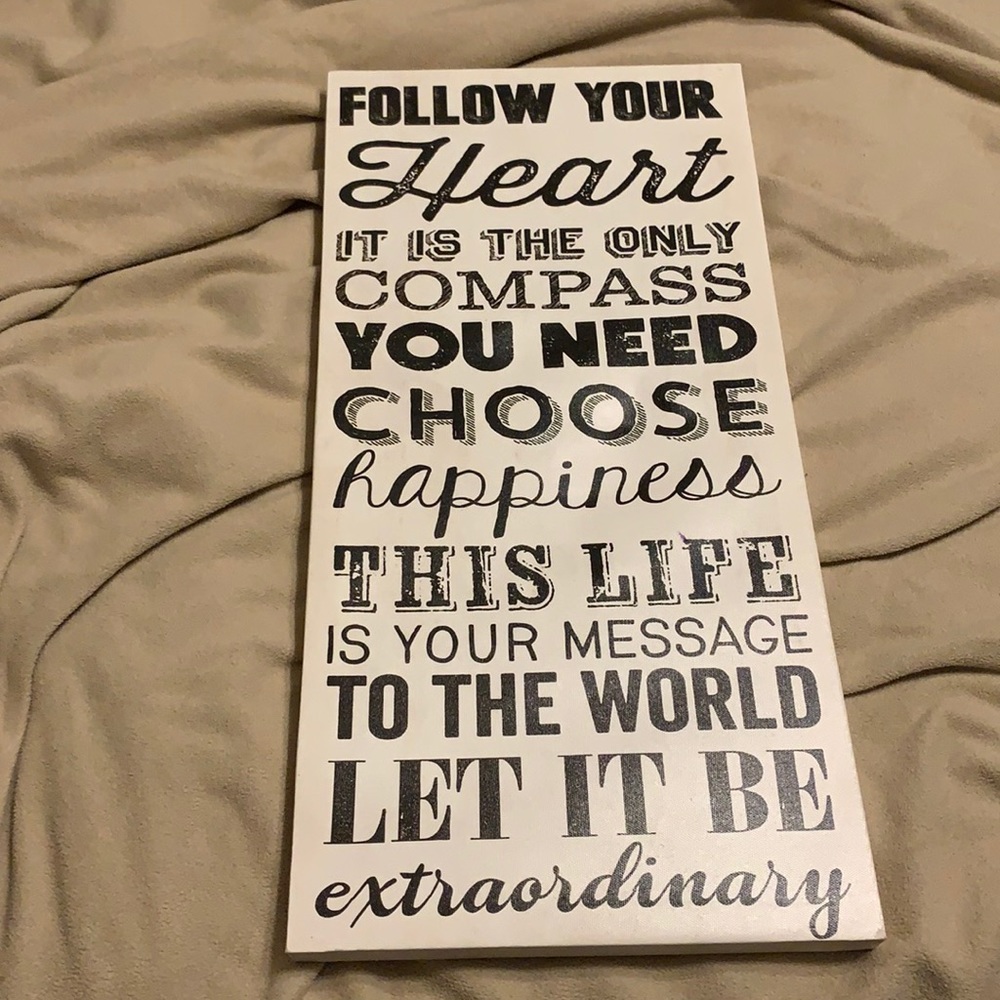 FOLLOW YOUR
Heart
IT IS THE ONLY
COMPASS
YOU NEED
CHOOSE
happiness
THIS LIFE
IS YOUR MESSAGE
TO THE WORLD
LET IT BE
extraordinary